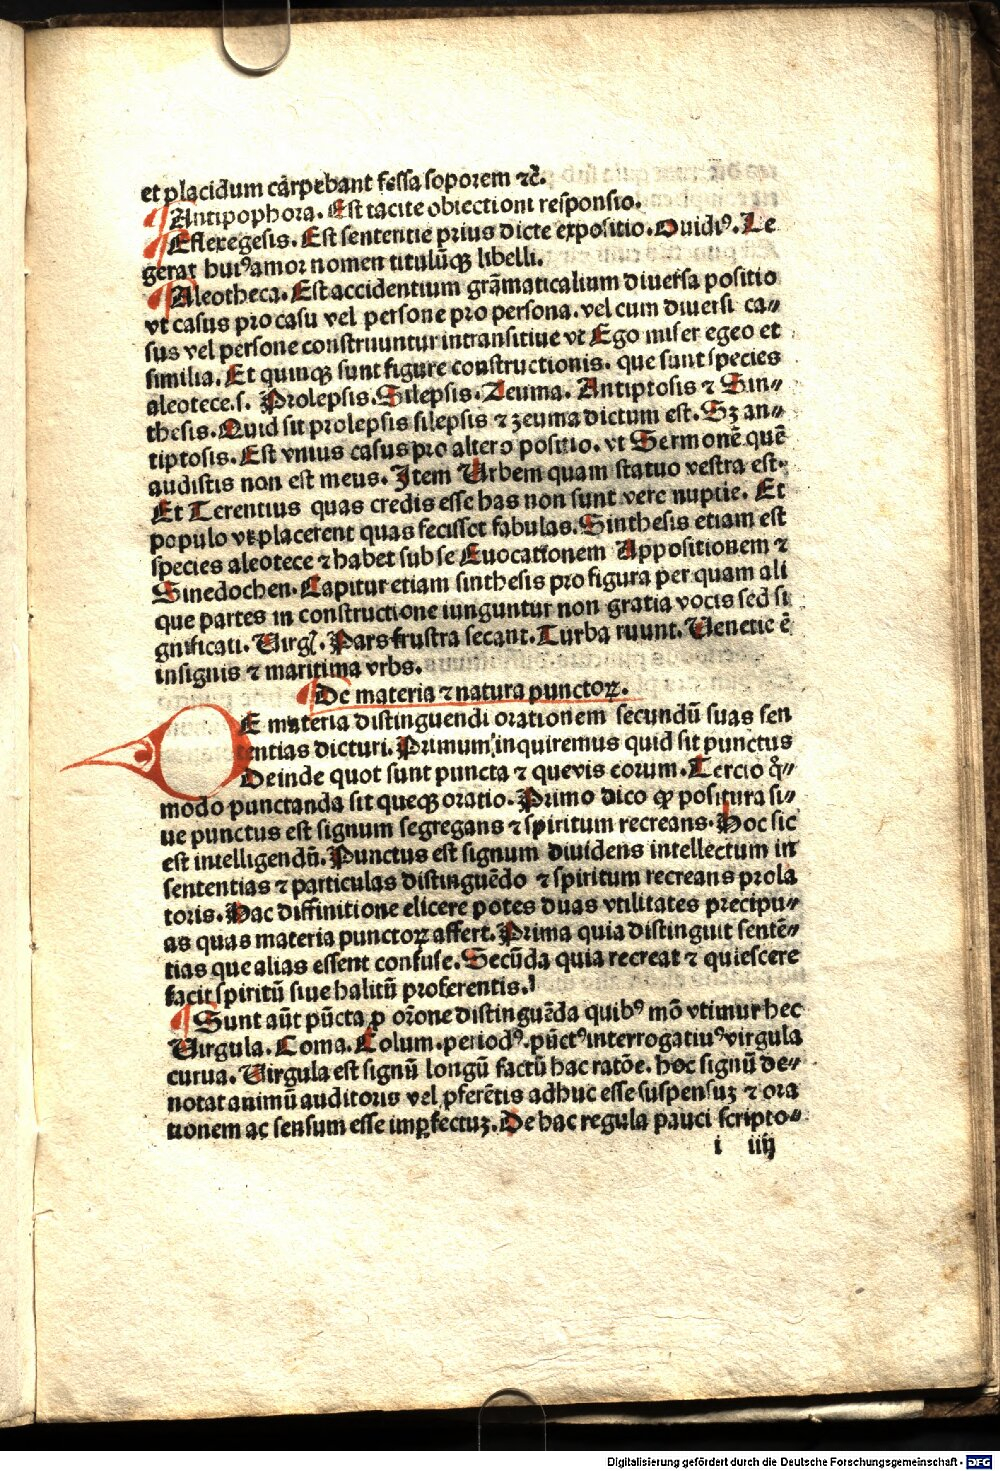 et placidum carpebant fessa soporem ⁊c̄.
Antipophora. Est tacite obiectioni responsio.
Eflexegesis. Est sententie prius dicte expositio. Ouidiꝰ. Le
gerat huiꝰ amor nomen titulūqꝫ libelli.
Aleotheca. Est accidentium grāmaticalium diuersa positio
vt casus pro casu vel persone pro persona. vel cum diuersi ca⸗
sus vel persone construuntur intransitiue vt Ego miser egeo et
similia. Et quinqꝫ sunt figure constructionis. que sunt species
aleotece.s. Prolepsis. Silepsis. Zeuma. Antiptosis ⁊ Sin⸗
thesis. Quid sit prolepsis silepsis ⁊ zeuma dictum est. Sꝫ an⸗
tiptosis. Est vnius casus pro altero positio. vt Sermonē quē
audistis non est meus. Item Urbem quam statuo vestra est.
Et Terentius quas credis esse has non sunt vere nuptie. Et
populo vt placerent quas fecisset fabulas. Sinthesis etiam est
species aleotece ⁊ habet sub se Euocationem Appositionem ⁊
Sinedochen. Capitur etiam sinthesis pro figura per quam ali
que partes in constructione iunguntur non gratia vocis sed si
gnificati. Virgl̓. Pars frustra secant. Turba ruunt. Venetie ē
insignis ⁊ maritima vrbs.
De materia ⁊ natura punctoꝝ.
E materia distinguendi orationem secundū suas sen
tentias dicturi. Primum inquiremus quid sit punctus
Deinde quot sunt puncta ⁊ quevis eorum. Tercio q̄⸗
modo punctanda sit queqꝫ oratio. Primo dico ꝙ positura si⸗
ue punctus est signum segregans ⁊ spiritum recreans. Hoc sic
est intelligendū. Punctus est signum diuidens intellectum in
sententias ⁊ particulas distinguēdo ⁊ spiritum recreans prola
toris. Hac diffinitione elicere potes duas vtilitates precipu⸗
as quas materia punctoꝝ affert. Prima quia distinguit sentē⸗
tias que alias essent confuse. Secūda quia recreat ⁊ quiescere
facit spiritū siue halitū proferentis.
Sunt aūt pūcta ꝓ or̄one distinguēda quibꝰ mō vtimur hec
Virgula. Coma. Colum. periodꝰ. pūctꝰ interrogatiuꝰ virgula
curua. Virgula est signū longū factū hac ratōe. hoc signū de⸗
notat animū auditoris vel ꝓferētis adhuc esse suspensuꝫ ⁊ ora
tionem ac sensum esse imꝑfectuꝫ. De hac regula pauci scripto⸗
i iiij
Digitalisierung gefördert durch die Deutsche Forschungsgemeinschaft - DFG